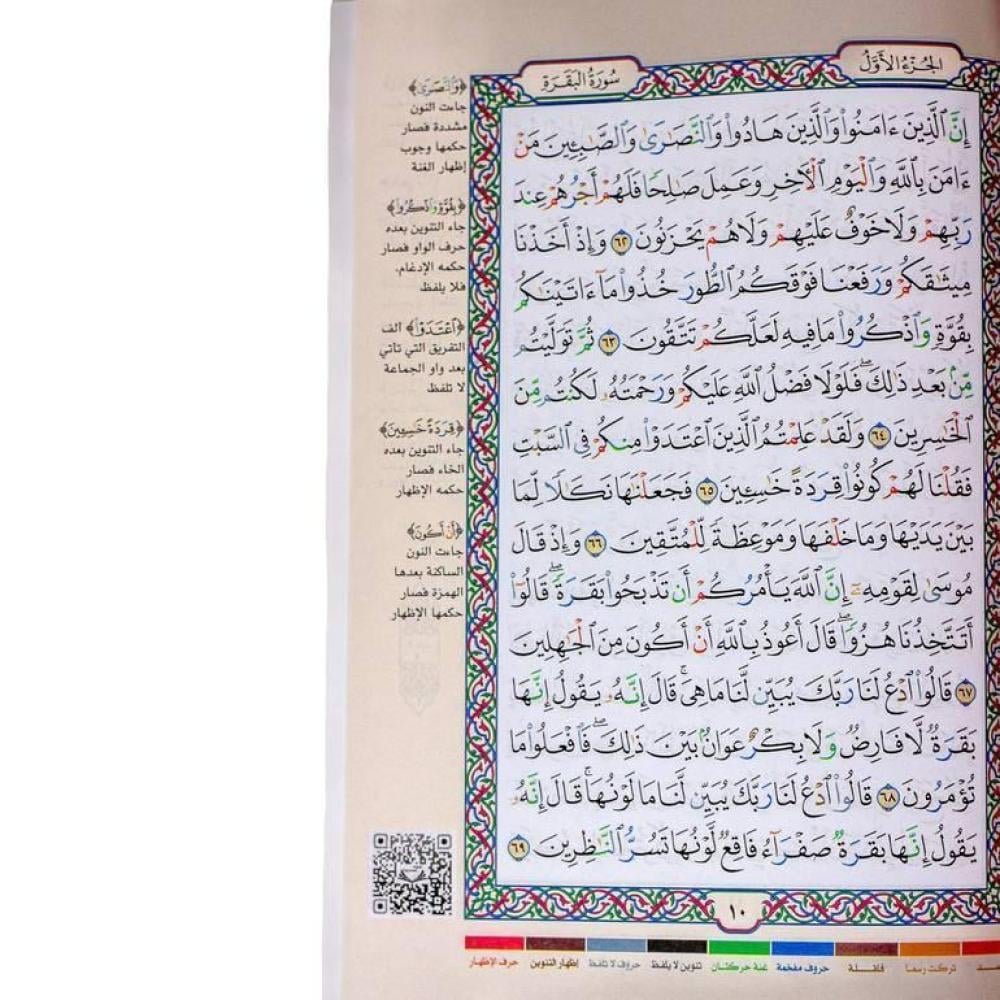 الجزء الأول
سورة البقرة
إِنَّ ٱلَّذِينَ ءَامَنُوا۟ وَٱلَّذِينَ هَادُوا۟ وَٱلنَّصَٰرَىٰ وَٱلصَّٰبِـِٔينَ مَنْ
ءَامَنَ بِٱللَّهِ وَٱلْيَوْمِ ٱلْـَٔاخِرِ وَعَمِلَ صَٰلِحًا فَلَهُمْ أَجْرُهُمْ عِندَ
رَبِّهِمْ وَلَا خَوْفٌ عَلَيْهِمْ وَلَا هُمْ يَحْزَنُونَ ٦٢ وَإِذْ أَخَذْنَا
مِيثَٰقَكُمْ وَرَفَعْنَا فَوْقَكُمُ ٱلطُّورَ خُذُوا۟ مَآ ءَاتَيْنَٰكُم
بِقُوَّةٍ وَٱذْكُرُوا۟ مَا فِيهِ لَعَلَّكُمْ تَتَّقُونَ ٦٣ ثُمَّ تَوَلَّيْتُم
مِّنۢ بَعْدِ ذَٰلِكَ ۖ فَلَوْلَا فَضْلُ ٱللَّهِ عَلَيْكُمْ وَرَحْمَتُهُۥ لَكُنتُم مِّنَ
ٱلْخَٰسِرِينَ ٦٤ وَلَقَدْ عَلِمْتُمُ ٱلَّذِينَ ٱعْتَدَوْا۟ مِنكُمْ فِى ٱلسَّبْتِ
فَقُلْنَا لَهُمْ كُونُوا۟ قِرَدَةً خَٰسِـِٔينَ ٦٥ فَجَعَلْنَٰهَا نَكَٰلًا لِّمَا
بَيْنَ يَدَيْهَا وَمَا خَلْفَهَا وَمَوْعِظَةً لِّلْمُتَّقِينَ ٦٦ وَإِذْ قَالَ
مُوسَىٰ لِقَوْمِهِۦٓ إِنَّ ٱللَّهَ يَأْمُرُكُمْ أَن تَذْبَحُوا۟ بَقَرَةً ۖ قَالُوٓا۟
أَتَتَّخِذُنَا هُزُوًا ۖ قَالَ أَعُوذُ بِٱللَّهِ أَنْ أَكُونَ مِنَ ٱلْجَٰهِلِينَ
٦٧ قَالُوا۟ ٱدْعُ لَنَا رَبَّكَ يُبَيِّن لَّنَا مَا هِىَ ۚ قَالَ إِنَّهُۥ يَقُولُ إِنَّهَا
بَقَرَةٌ لَّا فَارِضٌ وَلَا بِكْرٌ عَوَانٌۢ بَيْنَ ذَٰلِكَ ۖ فَٱفْعَلُوا۟ مَا
تُؤْمَرُونَ ٦٨ قَالُوا۟ ٱدْعُ لَنَا رَبَّكَ يُبَيِّن لَّنَا مَا لَوْنُهَا ۚ قَالَ إِنَّهُۥ
يَقُولُ إِنَّهَا بَقَرَةٌ صَفْرَآءُ فَاقِعٌ لَّوْنُهَا تَسُرُّ ٱلنَّٰظِرِينَ ٦٩
١٠
﴿وَٱلنَّصَٰرَىٰ﴾
جاءت النون
مشددة فصار
حكمها وجوب
إظهار الغنة
﴿بِقُوَّةٍ وَٱذْكُرُوا۟﴾
جاء التنوين بعده
حرف الواو فصار
حكمه الإدغام،
فلا يلفظ
﴿ٱعْتَدَوْا۟﴾ ألف
التفريق التي تأتي
بعد واو الجماعة
لا تلفظ
﴿قِرَدَةً خَٰسِـِٔينَ﴾
جاء التنوين بعده
الخاء فصار
حكمه الإظهار
﴿أَنْ أَكُونَ﴾
جاءت النون
الساكنة بعدها
الهمزة فصار
حكمها الإظهار
تركت رسما
قلقلة
حروف مفخمة
غنة حركتان
تنوين لا يلفظ
حروف لا تلفظ
إظهار التنوين
حرف الإظهار